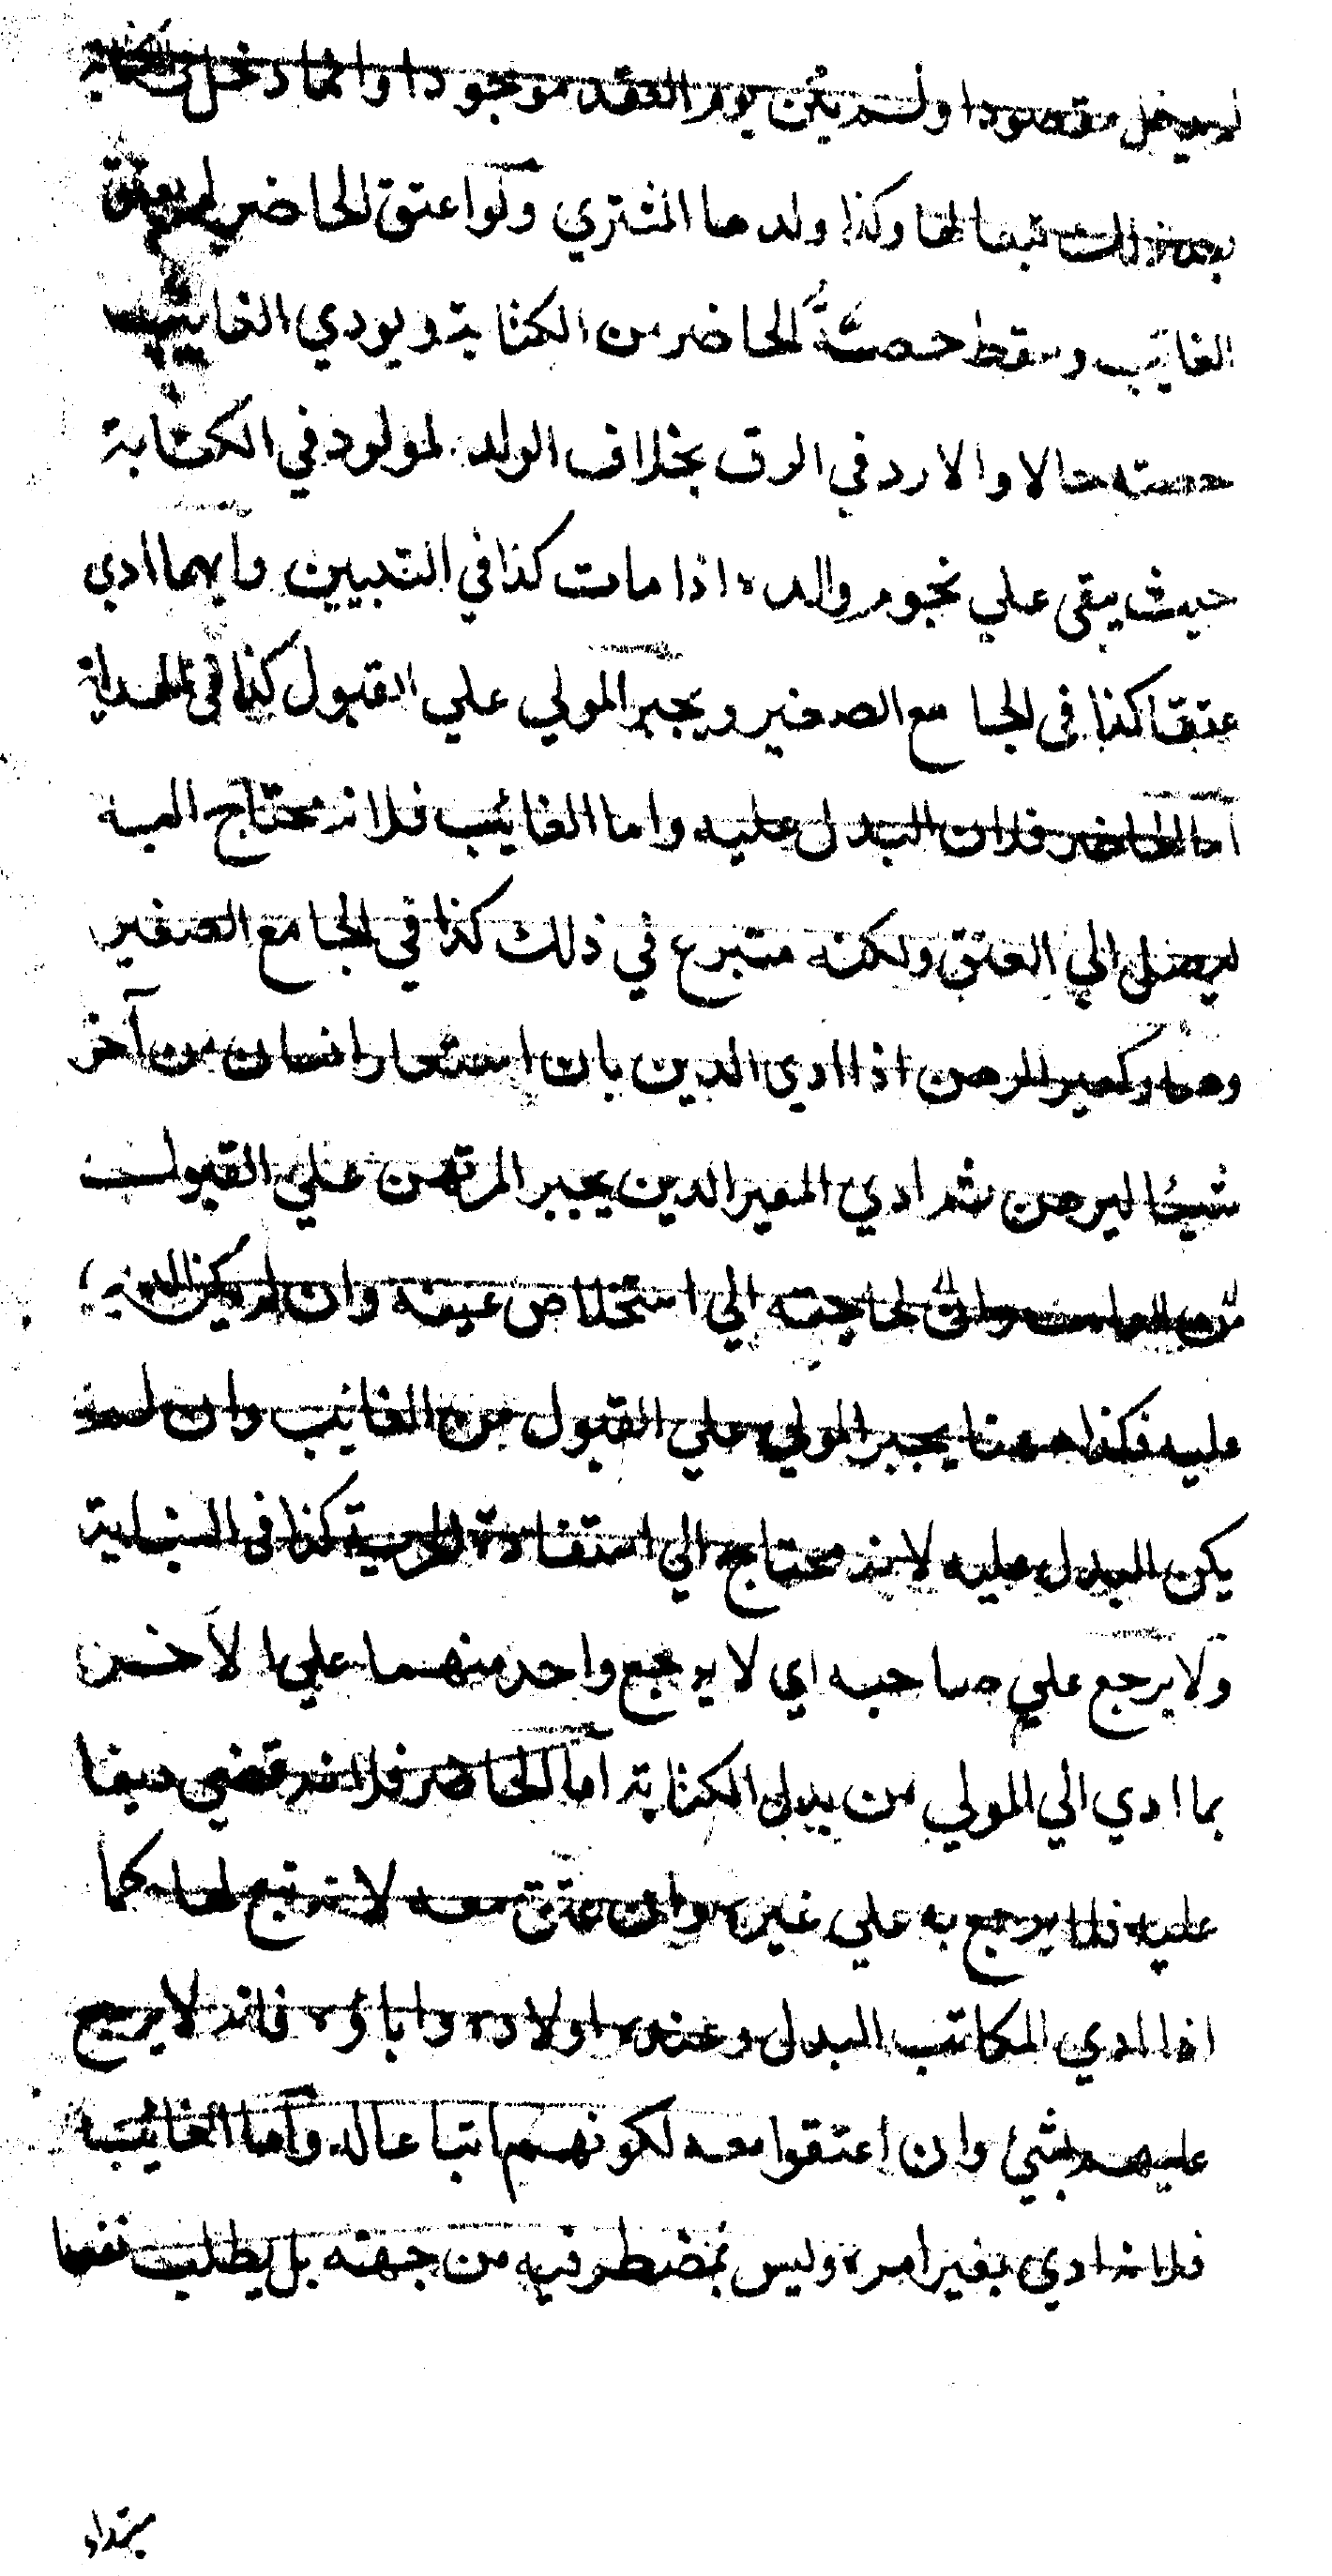 لم يدخل مقصودا ولم يكن يوم العقد موجودا وانما دخل في الكتابة
بعد ذلك تبعا لها وكذا ولدها المشتري ولو اعتق الحاضر لم يعتق
الغائب وسقط حصة الحاضر من الكتابة ويودي الغائب
حصته حالا والا رد في الرق بخلاف الولد المولود في الكتابة
حيث يبقى علي نجوم والده اذا مات كذا في التبيين وايهما ادي
عتقا كذا في الجامع الصغير ويجبر المولي علي القبول كذا في الهداية
اما الحاضر فلان البدل عليه واما الغائب فلانه محتاج اليه
ليصل الي العتق ولكنه متبرع في ذلك كذا في الجامع الصغير
وصار كمعير الرهن اذا ادي الدين بان استعار انسان من آخر
شيئا ليرهن ثم ادي المعير الدين يجبر المرتهن علي القبول
لحاجته الي استخلاص عينه وان لم يكن الدين
عليه فكذا ههنا يجبر المولي علي القبول من الغائب وان لم
يكن البدل عليه لانه محتاج الي استفادة الحرية كذا في النهاية
ولا يرجع علي صاحبه اي لا يرجع واحد منهما علي الآخر
بما ادي الي المولي من بدل الكتابة اما الحاضر فلانه قضي دينا
عليه فلا يرجع به علي غيره وان عتق معه لانه تبع لها كما
اذا ادي المكاتب البدل وعنده اولاده واباؤه فانه لا يرجع
عليهم بشي وان اعتقوا معه لكونهم اتباعا له واما الغائب
فلانه ادي بغير امره وليس بمضطر فيه من جهته بل يطلب نفعا